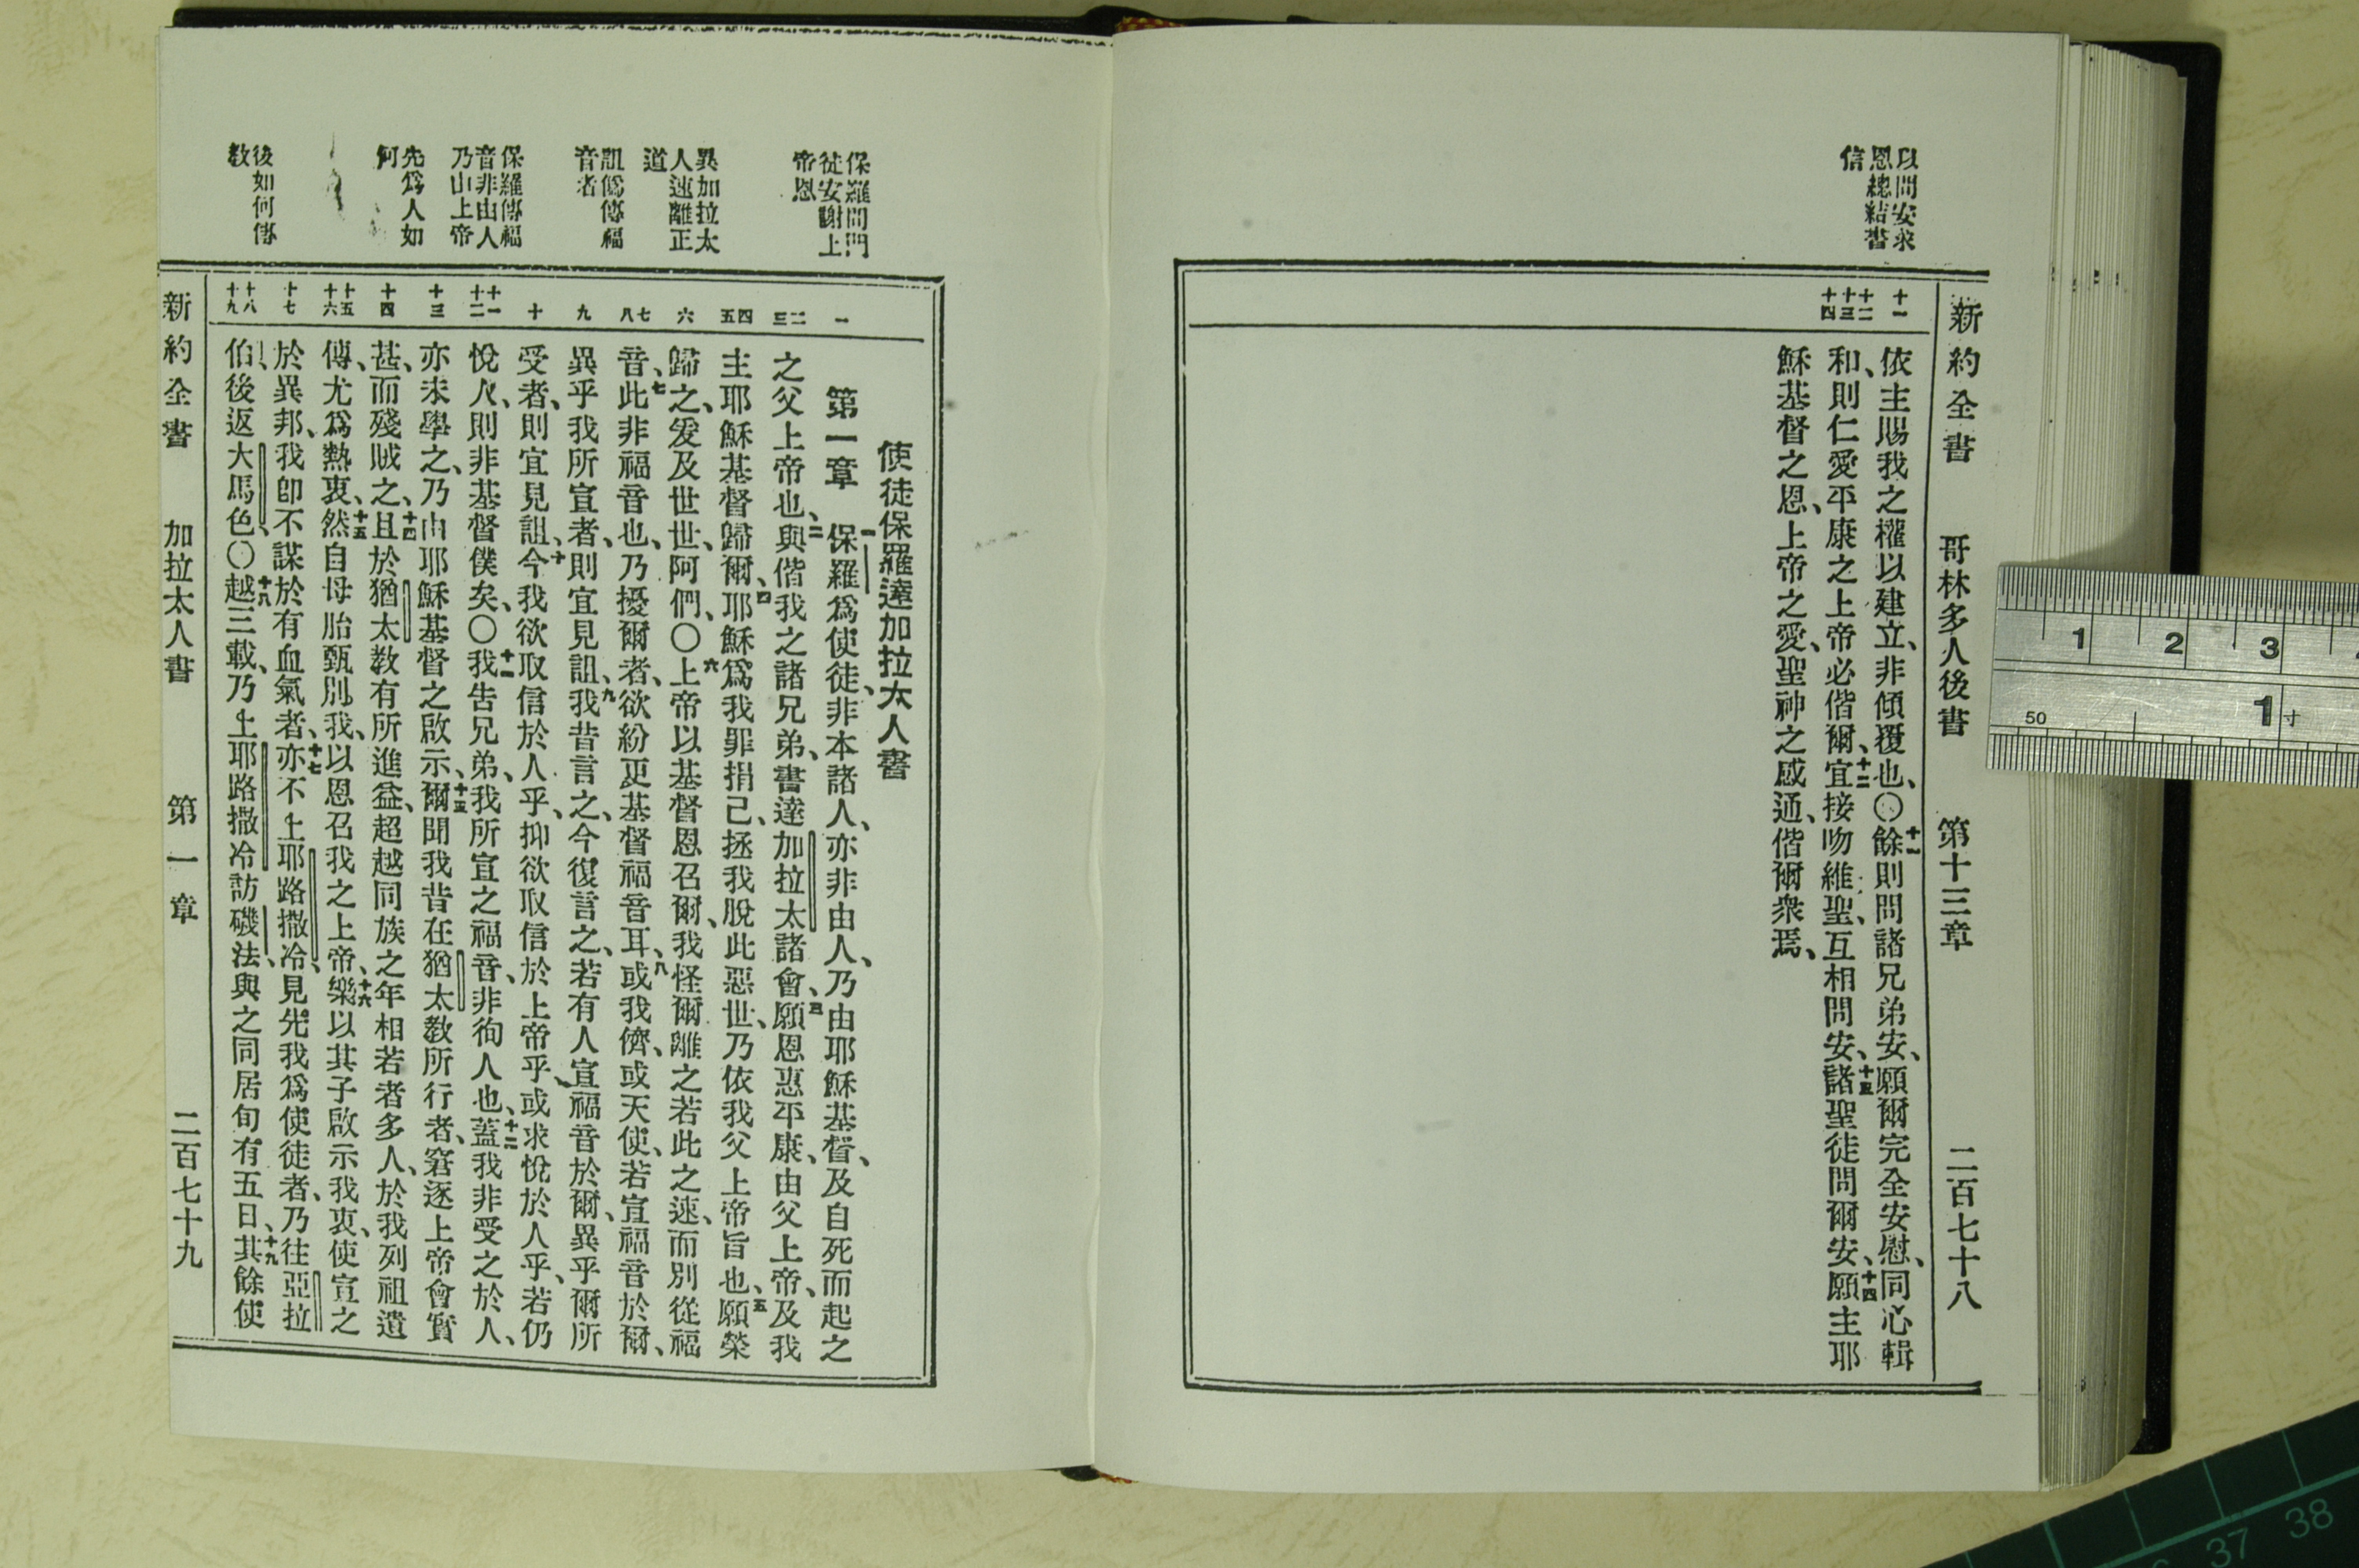 新約全書 哥林多人後書 第十三章 二百七十八
以問安求
恩總結書
信
十一
十二
十三
十四
依主賜我之權以建立、非傾覆也、〇十一餘則問諸兄弟安、願爾完全安慰、同心輯
和、則仁愛平康之上帝必偕爾、十二宜接吻維聖、互相問安、十三諸聖徒問爾安、十四願主耶
穌基督之恩、上帝之愛、聖神之感通、偕爾衆焉、
保羅問門
徒安謝上
帝恩
異加拉太
人速離正
道
詛僞傳福
音者
保羅傳福
音非由人
乃由上帝
先爲人如
何
後如何傳
教
一
二
三
四
五
六
七
八
九
十
十一
十二
十三
十四
十五
十六
十七
十八
十九
使徒保羅達加拉太人書
第一章 一保羅爲使徒、非本諸人、亦非由人、乃由耶穌基督、及自死而起之
之父上帝也、二與偕我之諸兄弟、書達加拉太諸會、三願恩惠平康、由父上帝、及我
主耶穌基督歸爾、四耶穌爲我罪捐己、拯我脫此惡世、乃依我父上帝旨也、五願榮
歸之、爰及世世、阿們、〇六上帝以基督恩召爾、我怪爾離之若此之速、而別從福
音、七此非福音也、乃擾爾者、欲紛更基督福音耳、八或我儕、或天使、若宣福音於爾、
異乎我所宣者、則宜見詛、九我昔言之、今復言之、若有人宣福音於爾、異乎爾所
受者、則宜見詛、十今我欲取信於人乎、抑欲取信於上帝乎、或求悅於人乎、若仍
悅人、則非基督僕矣、〇十一我告兄弟、我所宣之福音、非徇人也、十二蓋我非受之於人、
亦未學之、乃由耶穌基督之啟示、十三爾聞我昔在猶太教所行者、窘逐上帝會實
甚、而殘賊之、十四且於猶太教有所進益、超越同族之年相若者多人、於我列祖遺
傳、尤爲熱衷、十五然自母胎甄別我、以恩召我之上帝、十六樂以其子啟示我衷、使宣之
於異邦、我卽不謀於有血氣者、十七亦不上耶路撒冷、見先我爲使徒者、乃往亞拉
伯、後返大馬色、〇十八越三載、乃上耶路撒冷訪磯法、與之同居旬有五日、十九其餘使
新約全書 加拉太人書 第一章 二百七十九
1 2 3
50 1寸
37 38